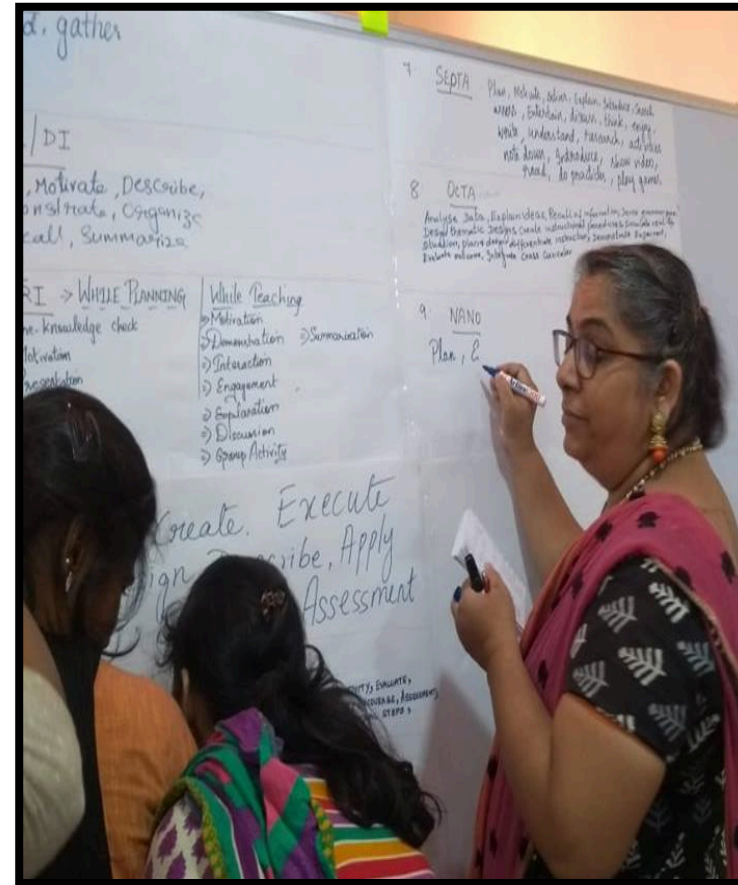 d, gather
/ DI
, Motivate, Describe,
onstrate, Organize
call, Summarize
RI → WHILE PLANNING
re-knowledge check
Motivation
Presentation
While Teaching
Motivation
Demonstration ⇒ Summarization
⇒ Interaction
⇒ Engagement
⇒ Explanation
⇒ Discussion
⇒ Group Activity
Create. Execute
ign Describe, Apply
Assessment
VITY, EVALUATE,
COURAGE, ASSESSMENT,
STEPS,
7 SEPTA
Plan, Motivate, deliver, Explain, Introduce, Search
assess, Entertain, discuss, think, enjoy,
write, understand, research, activities
note down, Introduce, show video,
read, do practicles, play games
8 OCTA
Analyse Data, Explain ideas, Recall of information,
Design thematic Designs Create instructional procedures Simulate real life
Situation, plan & design differentiate instruction, Demonstrate Experiment,
Evaluate outcome, Integrate Cross Curricular
9 NANO
Plan, E